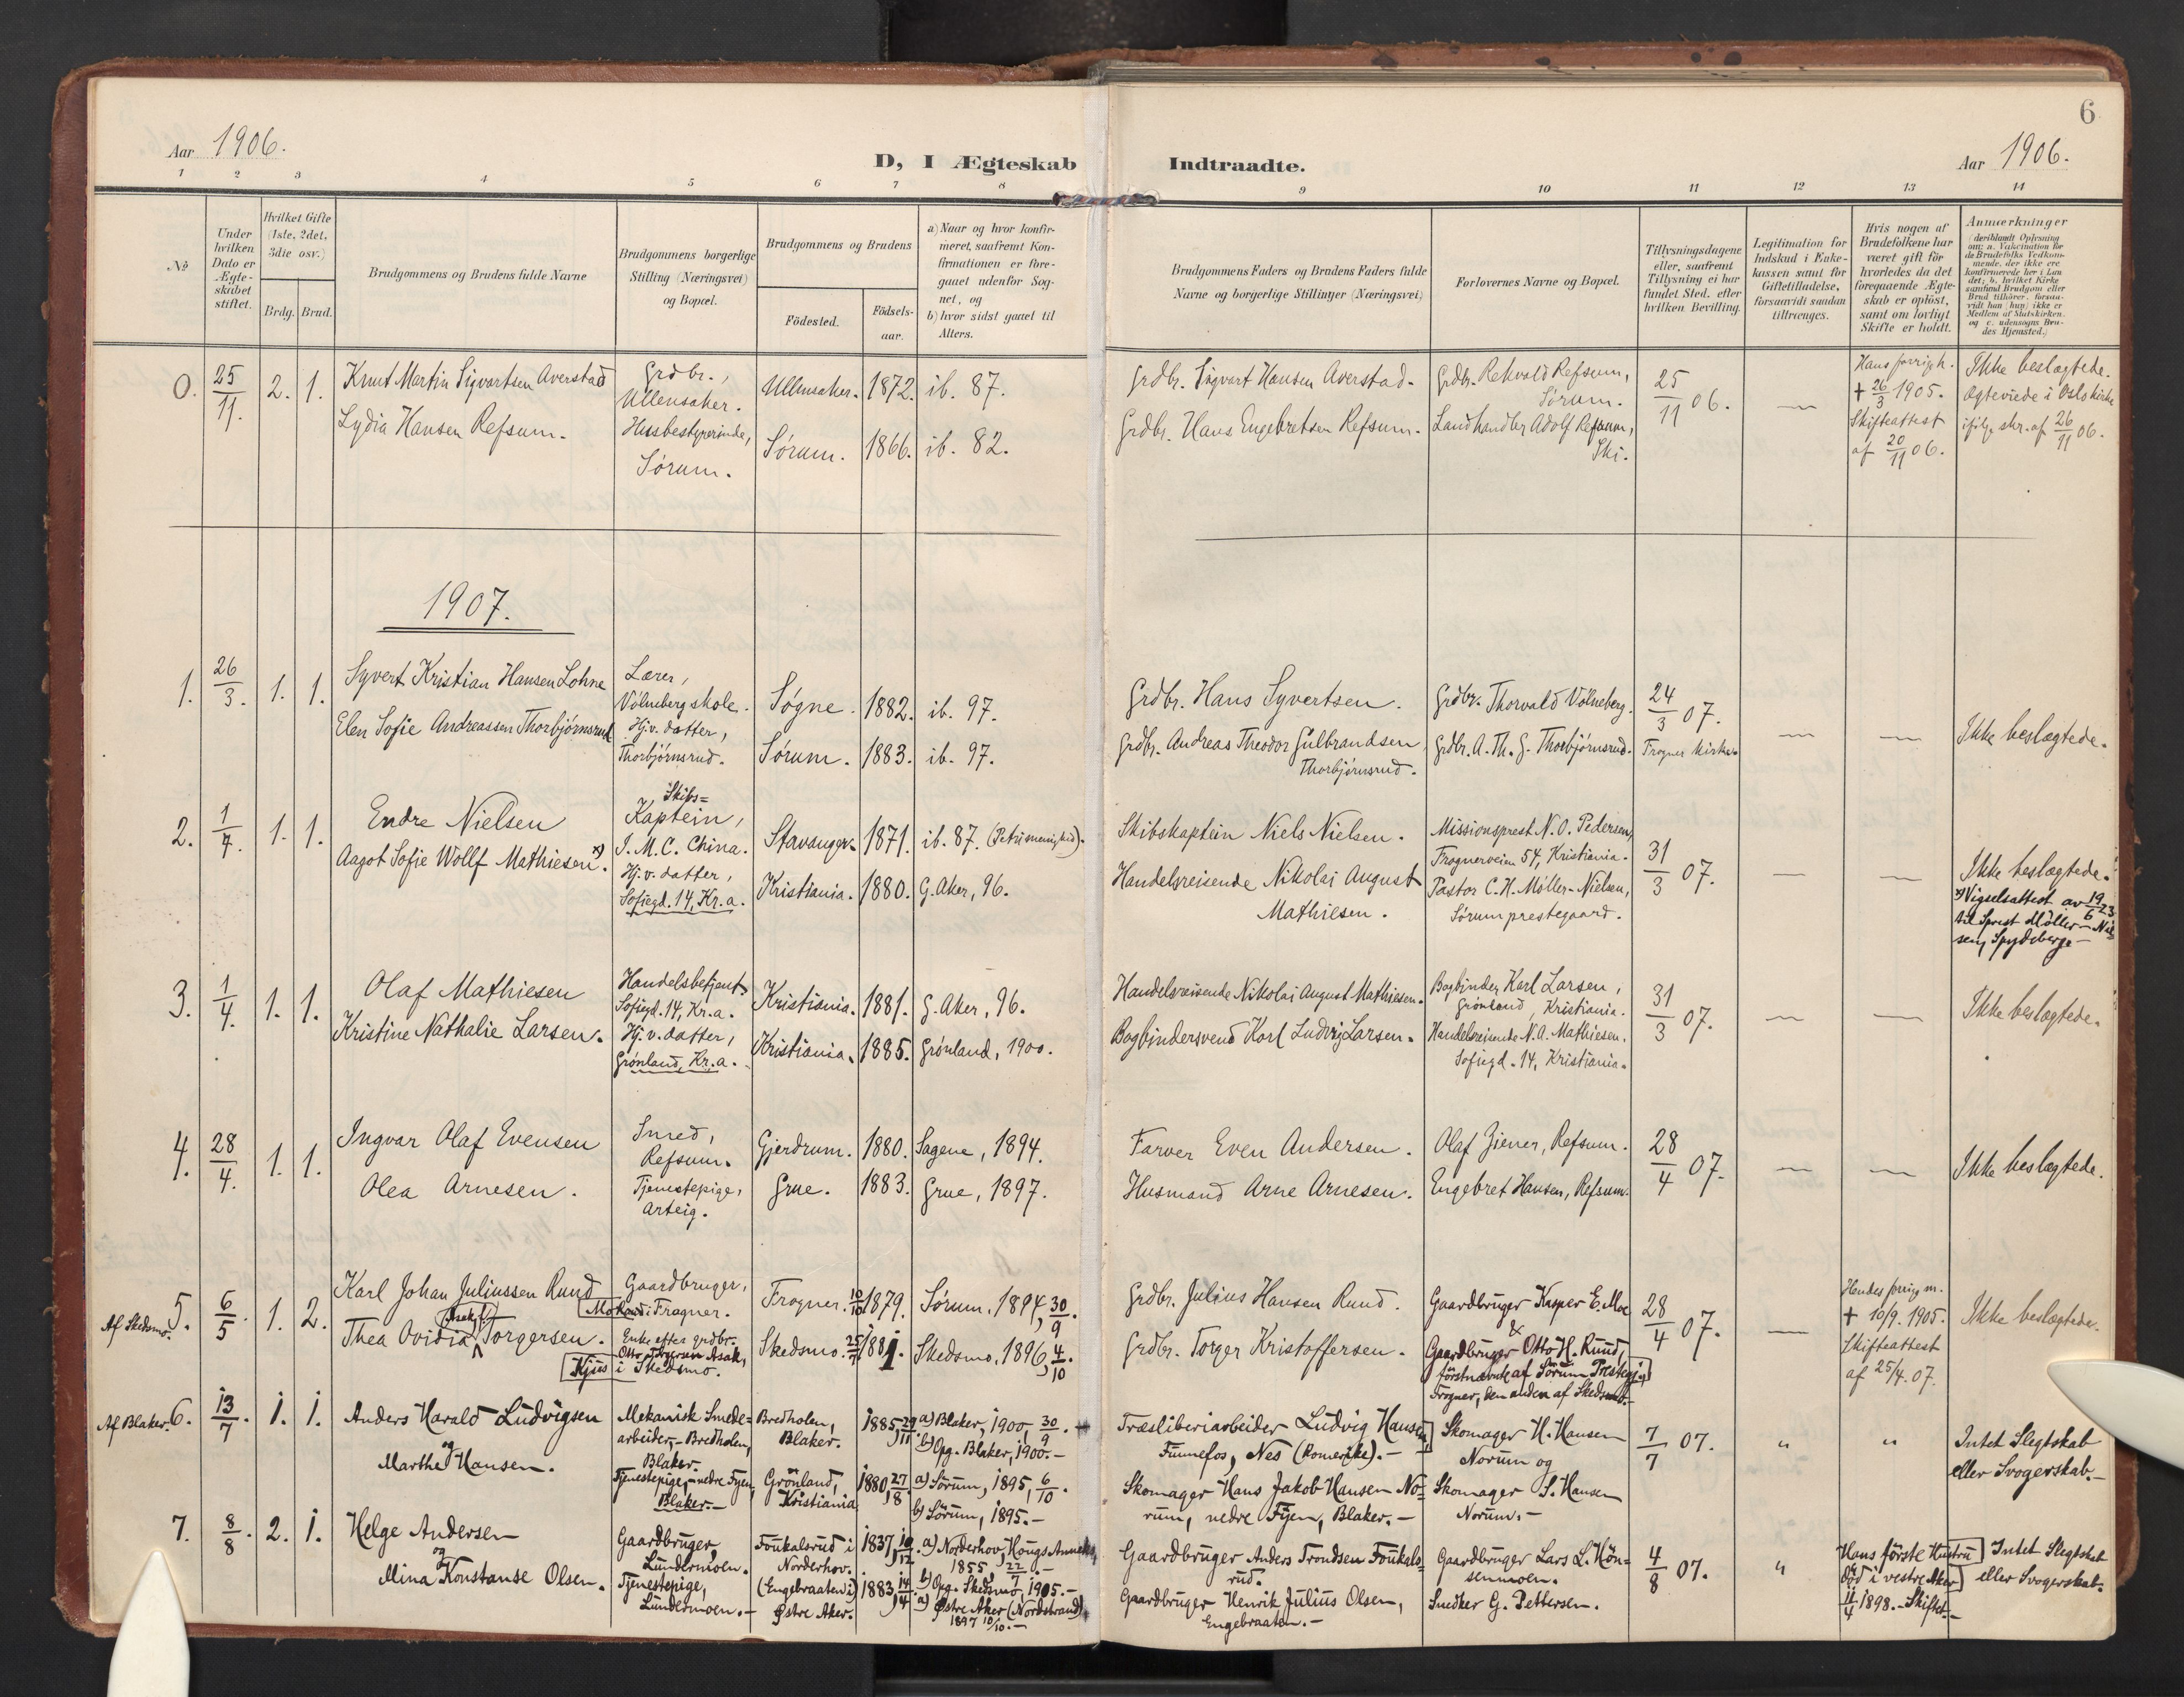 6
Aar 1906.
D, I Ægteskab Indtraadte.
Aar 1906.
1 2 3 4 5 6 7 8 9 10 11 12 13 14
No
Under hvilken Dato er Ægte-skabet stiftet.
Hvilket Gifte (1ste, 2det, 3die osv.)
Brdg. Brud.
Brudgommens og Brudens fulde Navne
Brudgommens borgerlige Stilling (Næringsvei) og Bopæl.
Brudgommens og Brudens
Födested.
Födsels-aar.
a) Naar og hvor konfir-meret, saafremt Kon-firmationen er fore-gaaet udenfor Sog-net, og
b) hvor sidst gaaet til Alters.
Brudgommens Faders og Brudens Faders fulde Navne og borgerlige Stillinger (Næringsvei)
Forlovernes Navne og Bopæl.
Tillysningsdagene eller, saafremt Tillysning ei har fundet Sted, efter hvilken Bevilling.
Legitimation for Indskud i Enke-kassen samt for Giftetilladelse, forsaavidt saadan tiltrænges.
Hvis nogen af Brudefolkene har været gift før hvorledes da det foregaaende Ægte-skab er opløst, samt om lovligt Skifte er holdt.
Anmærkninger
(deriblandt Oplysning om: a. Vakcination for de Brudefolks Vedkom-mende, der ikke ere konfirmerede her i Lan det; b. hvilket Kirke samfund Brudgom eller Brud tilhører, forsaa-vidt han (hun) ikke er Medlem af Statskirken. og c. udensogns Bru-des Hjemsted.)
0. 25/11. 2. 1.
Knut Martin Sigvartsen Averstad
Lydia Hansen Refsum.
Grdbr.,
Ullensaker.
Husbestyrerinde,
Sörum.
Ullensaker. 1872. ib. 87.
Sörum. 1866. ib. 82.
Grdbr. Sigvart Hansen Averstad.
Grdbr. Hans Engebretsen Refsum.
Grdbr. Rekvold Refsum,
Sörum.
Landhandler Adolf Refsum,
Ski.
25/11 06.
—
Hans forrige h.
† 26/3 1905.
Skifteattest
af 20/11 06.
Ikke beslægtede.
Ægteviede i Oslo kirke
ifølge skr. af 26/11 06.
1907.
1. 26/3. 1. 1.
Syvert Kristian Hansen Lohne
Elen Sofie Andreassen Thorbjörnsrud
Lærer,
Völneberg skole.
Hj.v. datter,
Thorbjörnsrud.
Søgne. 1882. ib. 97.
Sörum. 1883. ib. 97.
Grdbr. Hans Syvertsen.
Grdbr. Andreas Theodor Gulbrandsen
Thorbjörnsrud.
Grdbr. Thorvald Völneberg.
Grdbr. A. Th. G. Thorbjörnsrud.
24/3 07.
Frogner kirke.
—
—
Ikke beslægtede.
2. 1/4. 1. 1.
Endre Nielsen
Aagot Sofie Wollf Mathiesen x).
Skibs=
Kaptein,
I. M. C. China.
Hj.v. datter,
Sofiegd. 14, Kr.a.
Stavanger. 1871. ib. 87. (Petrimenighed).
Kristiania. 1880. G. Aker, 96.
Skibskaptein Niels Nielsen.
Handelsreisende Nikolai August
Mathiesen.
Missionsprest N. O. Pedersen,
Frognerveien 54, Kristiania.
Pastor C. H. Møller-Nielsen,
Sörum prestegaard.
31/3 07.
—
—
Ikke beslægtede.
x) Vigselsattest av 19/6 23
til Sprest Möller-Niel
sen, Spydeberg.
3. 1/4. 1. 1.
Olaf Mathiesen
Kristine Nathalie Larsen.
Handelsbetjent,
Sofiegd. 14, Kr.a.
Hj.v. datter,
Grönland, Kr.a.
Kristiania. 1881. G. Aker, 96.
Kristiania. 1885. Grönland, 1900.
Handelsreisende Nikolai August Mathiesen.
Bogbindersvend Karl Ludvig Larsen.
Bogbinder Karl Larsen,
Grönland, Kristiania.
Handelsreisende N. A. Mathiesen,
Sofiegd. 14, Kristiania.
31/3 07.
—
—
Ikke beslægtede.
4. 28/4. 1. 1.
Ingvar Olaf Evensen
Olea Arnesen.
Smed,
Refsum.
Tjenestepige,
Arteig.
Gjerdrum. 1880. Sagene, 1894.
Grue. 1883. Grue, 1897.
Farver Even Andersen.
Husmand Arne Arnesen.
Olaf Ziener, Refsum.
Engebret Hansen, Refsum.
28/4 07.
—
—
Ikke beslægtede.
Af Skedsmo. 5. 6/5. 1. 2.
Karl Johan Juliussen Rund
Thea Ovidia (Asak f.) Torgersen.
Gaardbruger,
Frogner.
Enke efter grdbr.
Otto Torgersen Asak,
Kjus i Skedsmo.
Frogner. 10/10 1879. Sörum, 1894, 30/9.
Skedsmo. 25/7 1881. Skedsmo, 1896, 4/10.
Grdbr. Julius Hansen Rund.
Grdbr. Torger Kristoffersen.
Gaardbruger Kasper E. Moe
&
Gaardbruger Otto H. Rund,
förstnævnte af Sörum Prestegj.
Frogner, den anden af Skedsmo.
28/4 07.
—
Hendes forrige m.
† 10/9. 1905.
Skifteattest
af 25/4. 07.
Ikke beslægtede.
Af Blaker. 6. 13/7. 1. 1.
Anders Harald Ludvigsen
og
Marthe Hansen.
Mekanisk Smede=
arbeider, - Bredholen,
Blaker.
Tjenestepige, - nedre Fyen,
Blaker.-
Bredholen,
Blaker.
Grönland,
Kristiania
1885, 29/11.
1880, 27/8
a) Blaker, 1900, 30/9.
b) Opg. Blaker, 1900.-
a) Sörum, 1895, 6/10.
b) Sörum, 1895.-
Træsliberiarbeider Ludvig Hansen
Funnefos, Nes (Romerike).-
Skomager Hans Jakob Hansen No=
rum, nedre Fyen, Blaker.-
Skomager H. Hansen
Norum og
Skomager S. Hansen
Norum.-
7/7 07.
"
"
Intet Slegtskab
eller Svogerskab.-
7. 8/8. 2. 1.
Helge Andersen
og
Mina Konstanse Olsen.
Gaardbruger,
Lundermoen.
Tjenestepige,
Lundermoen.-
Foukalsrud i
Norderhov.
(Engebraaten i)
Østre Aker.
1837, 10/12.
1883, 14/4
a) Norderhov, Hougs Anneks,
1855, 22/7.-
b) Opg. Skedsmo, 1905.-
a) Østre Aker (Nordstrand)
1897 10/10.-
Gaardbruger Anders Trondsen Foukals=
rud.
Gaardbruger Henrik Julius Olsen,
Engebraaten.-
Gaardbruger Lars L. Kön=
senmoen.
Snedker G. Pettersen.
4/8 07.
"
Hans förste Hustru
död i vestre Aker
11/4 1898.- Skiftet.-
Intet Slegtskab
eller Svogerskab.